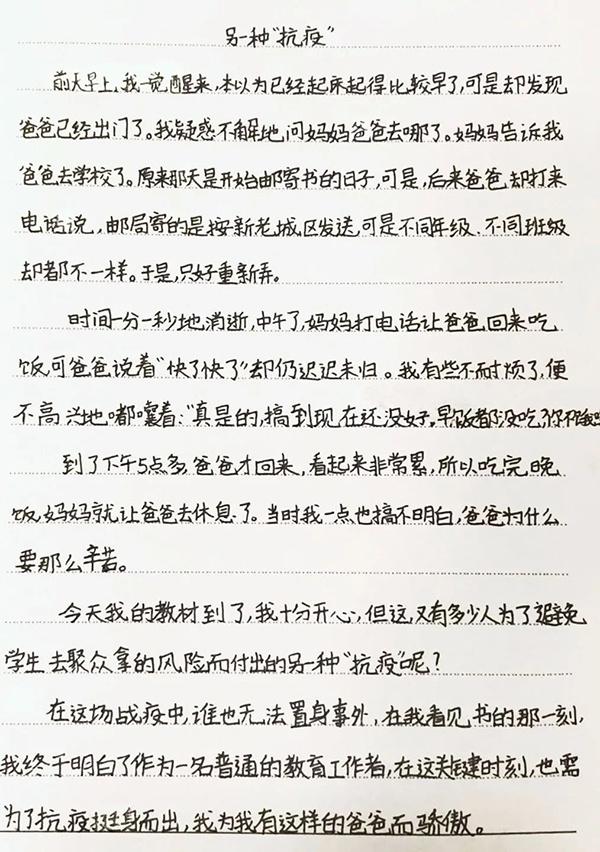 另一种“抗疫”
前天早上,我一觉醒来,本以为已经起床起得比较早了,可是却发现
爸爸已经出门了。我疑惑不解地问妈妈爸爸去哪了。妈妈告诉我
爸爸去学校了。原来那天是开始邮寄书的日子,可是,后来爸爸却打来
电话说,邮局寄的是按新老城区发送,可是不同年级、不同班级
却都不一样。于是,只好重新弄。
时间一分一秒地消逝,中午了,妈妈打电话让爸爸回来吃
饭,可爸爸说着“快了快了”却仍迟迟未归。我有些不耐烦了,便
不高兴地嘟囔着:“真是的,搞到现在还没好,早饭都没吃,你不饿
到了下午5点多,爸爸才回来,看起来非常累,所以吃完晚
饭,妈妈就让爸爸去休息了。当时我一点也搞不明白,爸爸为什么
要那么辛苦。
今天我的教材到了,我十分开心,但这又有多少人为了避免
学生去聚众拿的风险而付出的另一种“抗疫”呢?
在这场战疫中,谁也无法置身事外,在我看见书的那一刻,
我终于明白了作为一名普通的教育工作者,在这关键时刻,也需
为了抗疫挺身而出,我为我有这样的爸爸而骄傲。